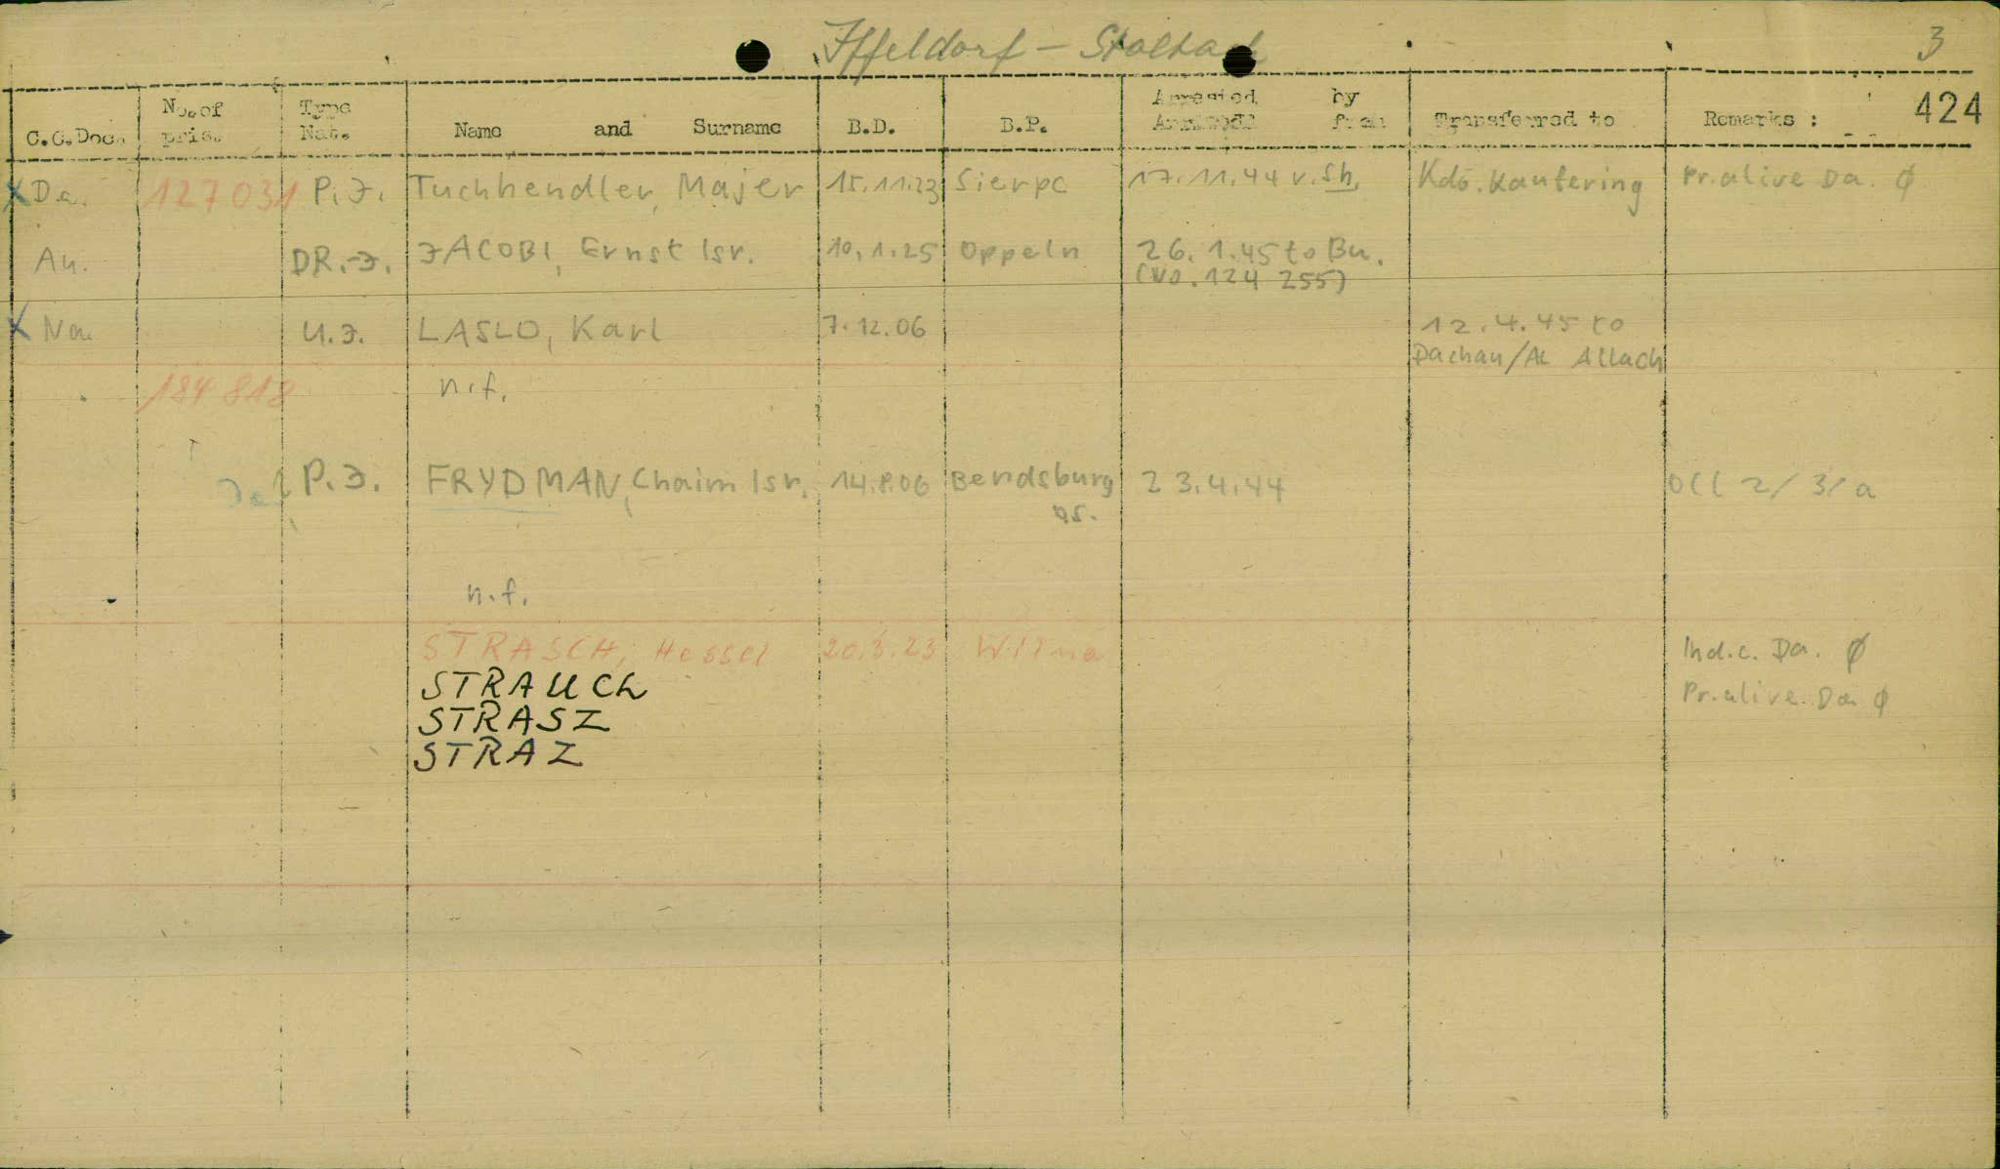 Iffeldorf - Staltach
3
424
C.C.Doc. No. of pris. Type Nat. Name and Surname B.D. B.P. Arrested by Arrived from Transferred to Remarks :
X Da. 127031 P.J. Tuchhendler, Majer 15.11.23 Sierpc 17.11.44 v. Sh. Kdo. Kaufering Pr. alive Da. Ø
Au. DR.-J. JACOBI, Ernst Isr. 10.1.25 Oppeln 26.1.45 to Bu.
(No. 124 255)
X Na. U.J. LASLO, Karl 7.12.06 12.4.45 to
Dachau/AL Allach
184 818 n.f.
P.J. FRYDMAN, Chaim Isr. 14.8.06 Bendsburg 23.4.44 OCC 2/3/a
OS.
n.f.
STRASCH, Hessel 20.3.23 Wilna Ind.c. Da. Ø
STRAUCh Pr. alive. Da Ø
STRASZ
STRAZ